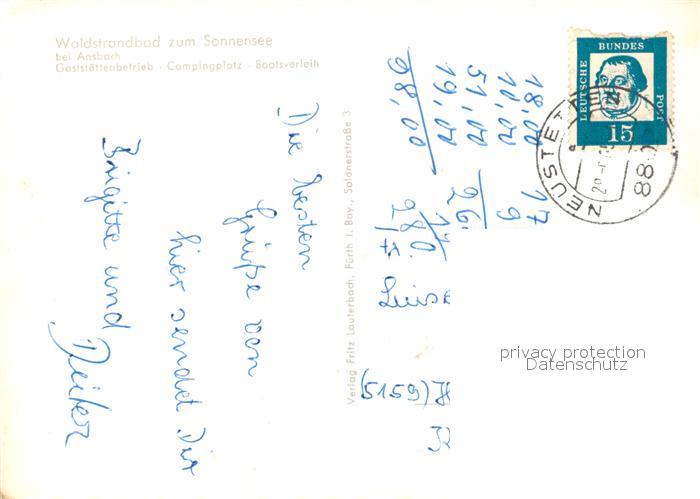 Waldstrandbad zum Sonnensee
bei Ansbach
Gaststättenbetrieb · Campingplatz · Bootsverleih
Die besten
Grüße von
hier sendet Dir
Brigitte und
Dieter
Verlag Fritz Lauterbach, Fürth i. Bay., Soldnerstraße 3
18,00
10,00
51,00
19,00
98,00
17
9
26
280
17
Luise
(5159)
DEUTSCHE
BUNDES
POST
15
NEUSTE
880
privacy protection
Datenschutz